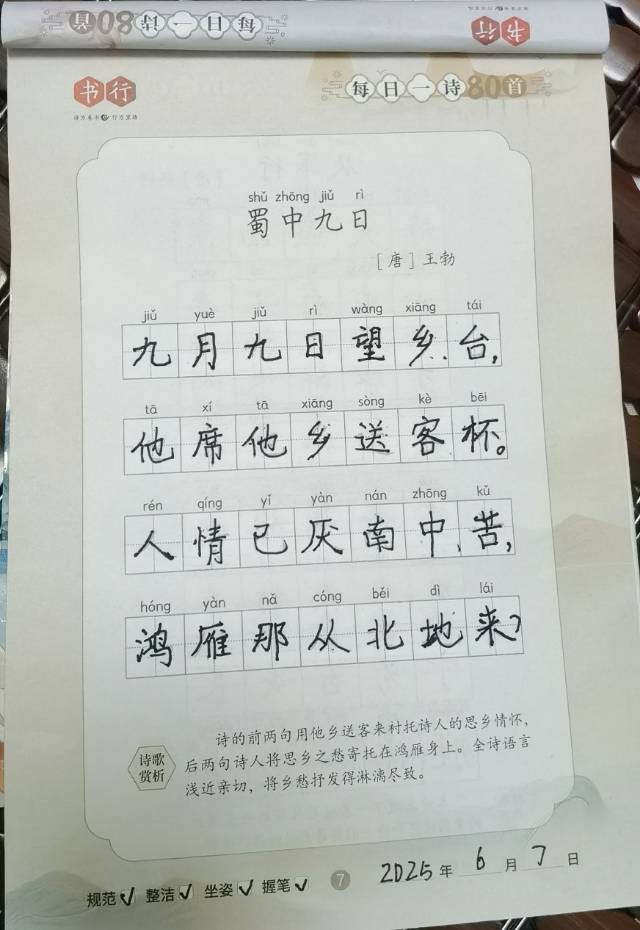 每日一诗80首
书行
书行
每日一诗80首
shǔ zhōng jiǔ rì
蜀中九日
[唐]王勃
jiǔ yuè jiǔ rì wàng xiāng tái
九月九日望乡台，
tā xí tā xiāng sòng kè bēi
他席他乡送客杯。
rén qíng yǐ yàn nán zhōng kǔ
人情已厌南中苦，
hóng yàn nǎ cóng běi dì lái
鸿雁那从北地来？
诗歌赏析
诗的前两句用他乡送客来衬托诗人的思乡情怀，
后两句诗人将思乡之愁寄托在鸿雁身上。全诗语言
浅近亲切，将乡愁抒发得淋漓尽致。
规范✓ 整洁✓ 坐姿✓ 握笔✓ 7 2025年6月7日